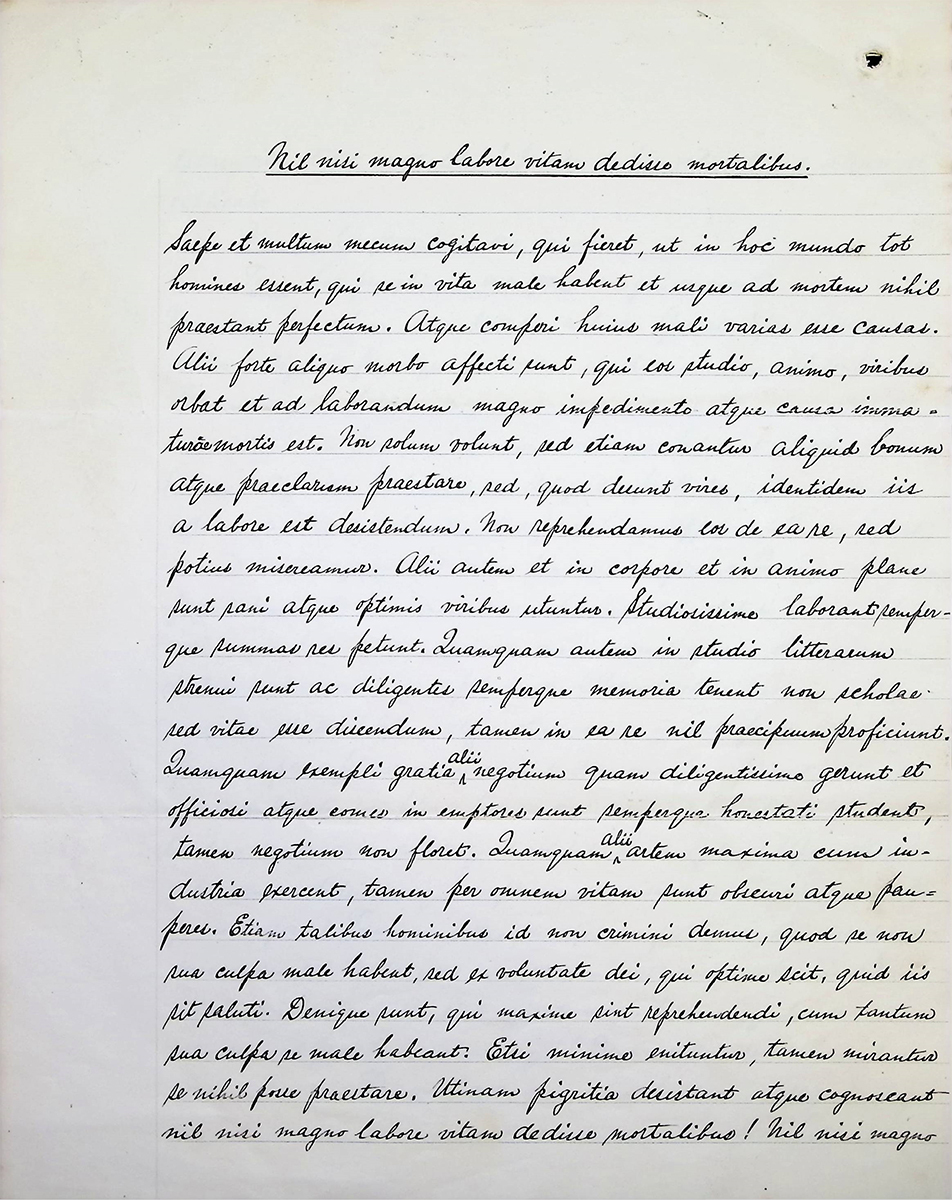 Nil nisi magno labore vitam dedisse mortalibus.
Saepe et multum mecum cogitavi, qui fieret, ut in hoc mundo tot
homines essent, qui se in vita male habent et usque ad mortem nihil
praestant perfectum. Atque comperi huius mali varias esse causas.
Alii forte aliquo morbo affecti sunt, qui eos studio, animo, viribus
orbat et ad laborandum magno impedimento atque causa imma=
turae mortis est. Non solum volunt, sed etiam conantur aliquid bonum
atque praeclarum praestare, sed, quod desunt vires, identidem iis
a labore est desistendum. Non reprehendamus eos de ea re, sed
potius misereamur. Alii autem et in corpore et in animo plane
sunt sani atque optimis viribus utuntur. Studiosissime laborant semper-
que summas res petunt. Quamquam autem in studio litterarum
strenui sunt ac diligentes semperque memoria tenent non scholae
sed vitae esse discendum, tamen in ea re nil praecipuum proficiunt.
Quamquam exempli gratia alii negotium quam diligentissime gerunt et
officiosi atque comes in emptores sunt semperque honestati student,
tamen negotium non floret. Quamquam alii artem maxima cum in-
dustria exercent, tamen per omnem vitam sunt obscuri atque pau=
peres. Etiam talibus hominibus id non crimini demus, quod se non
sua culpa male habent, sed ex voluntate dei, qui optime scit, quid iis
sit saluti. Denique sunt, qui maxime sint reprehendendi, cum tantum
sua culpa se male habeant. Etsi minime enituntur, tamen mirantur
se nihil posse praestare. Utinam pigritia desistant atque cognoscant
nil nisi magno labore vitam dedisse mortalibus! Nil nisi magno